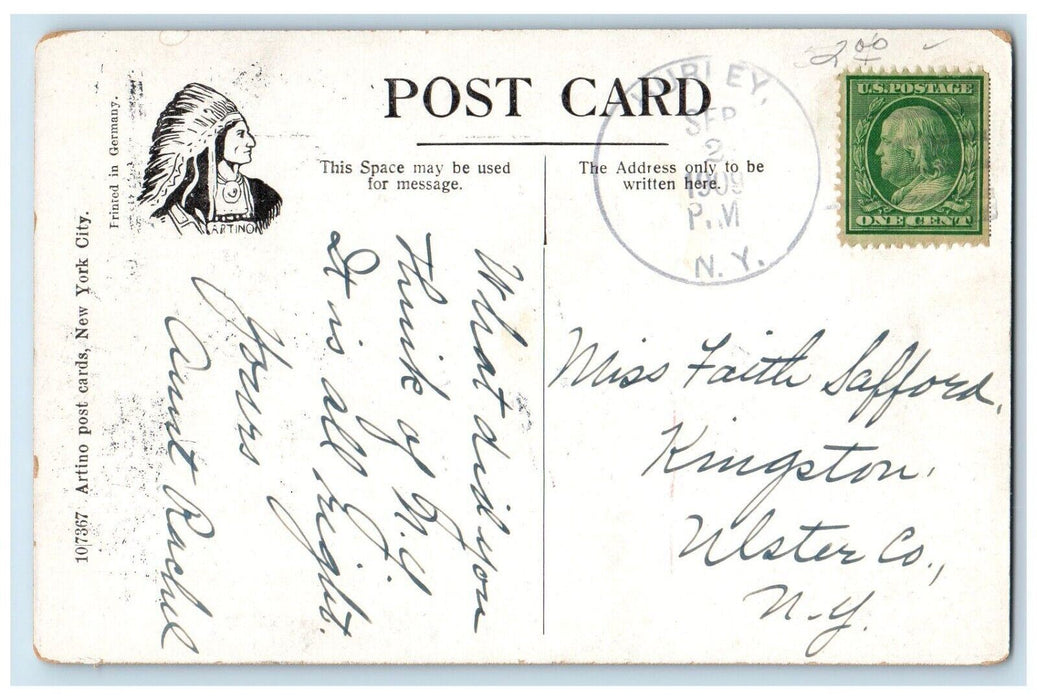 POST CARD
This Space may be used
for message.
The Address only to be
written here.
Printed in Germany.
ARTINO
10/7367 Artino post cards, New York City.
HURLEY,
SEP
2
1909
P.M
N.Y.
2 00
U.S. POSTAGE
ONE CENT
What did you
think of N.Y
It is all right.
Yours
Aunt Rachel
Miss Faith Safford,
Kingston,
Ulster Co.,
N.Y.